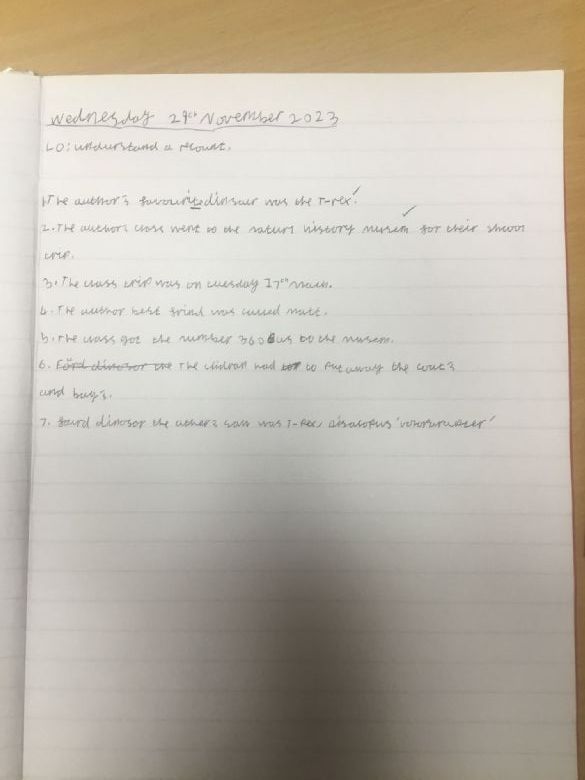 Wednesday 29th November 2023
LO: understand a recount.
1. The author's favourite dinsaur was the T-rex.
2. The authors class went to the naturl history musem for their shcool
trip.
3. The class trip was on tuesday 17th mach.
4. The author best frind was called matt.
5. The class got the number 360 bus to the musem.
6. The children had to Put away the coat's
and bag's.
7. dinosor the uther's saw was T-rex,